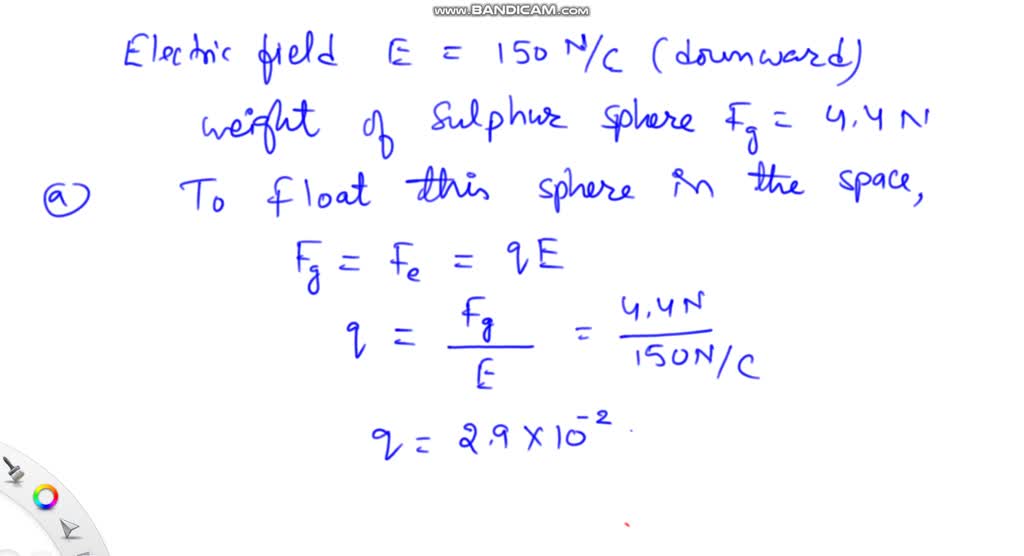 www.BANDICAM.com
Electric field E = 150 N/C (downward)
weight of sulphur sphere Fg = 4.4 N
a) To float this sphere in the space,
Fg = Fe = qE
q = Fg / E = 4.4N / 150N/C
q = 2.9 × 10⁻²